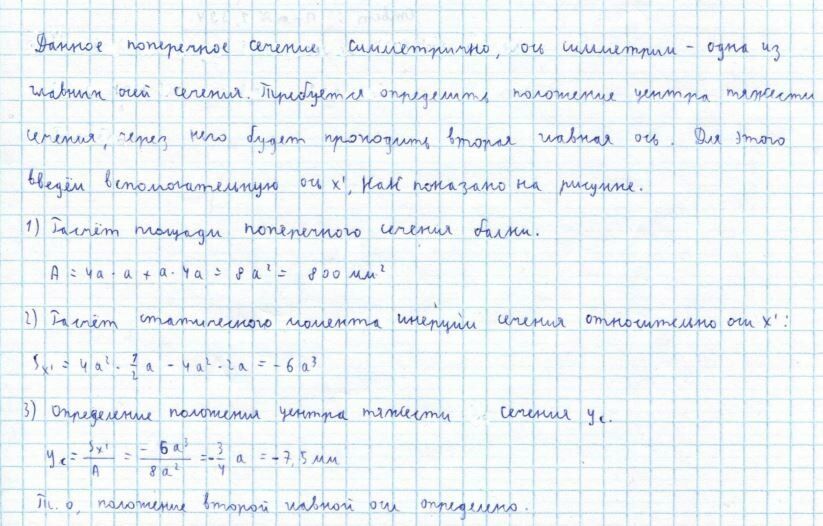 Данное поперечное сечение симметрично, ось симметрии - одна из
главных осей сечения. Требуется определить положение центра тяжести
сечения, через него будет проходить вторая главная ось. Для этого
введём вспомогательную ось x', как показано на рисунке.
1) Расчёт площади поперечного сечения балки.
A = 4a · a + a · 4a = 8a² = 800 мм²
2) Расчёт статического момента инерции сечения относительно оси x':
Sx' = 4a² · 1/2 a - 4a² · 2a = -6a³
3) Определение положения центра тяжести сечения yc.
yc = Sx'/A = -6a³/8a² = -3/4 a = -7,5 мм
Т. о, положение второй главной оси определено.